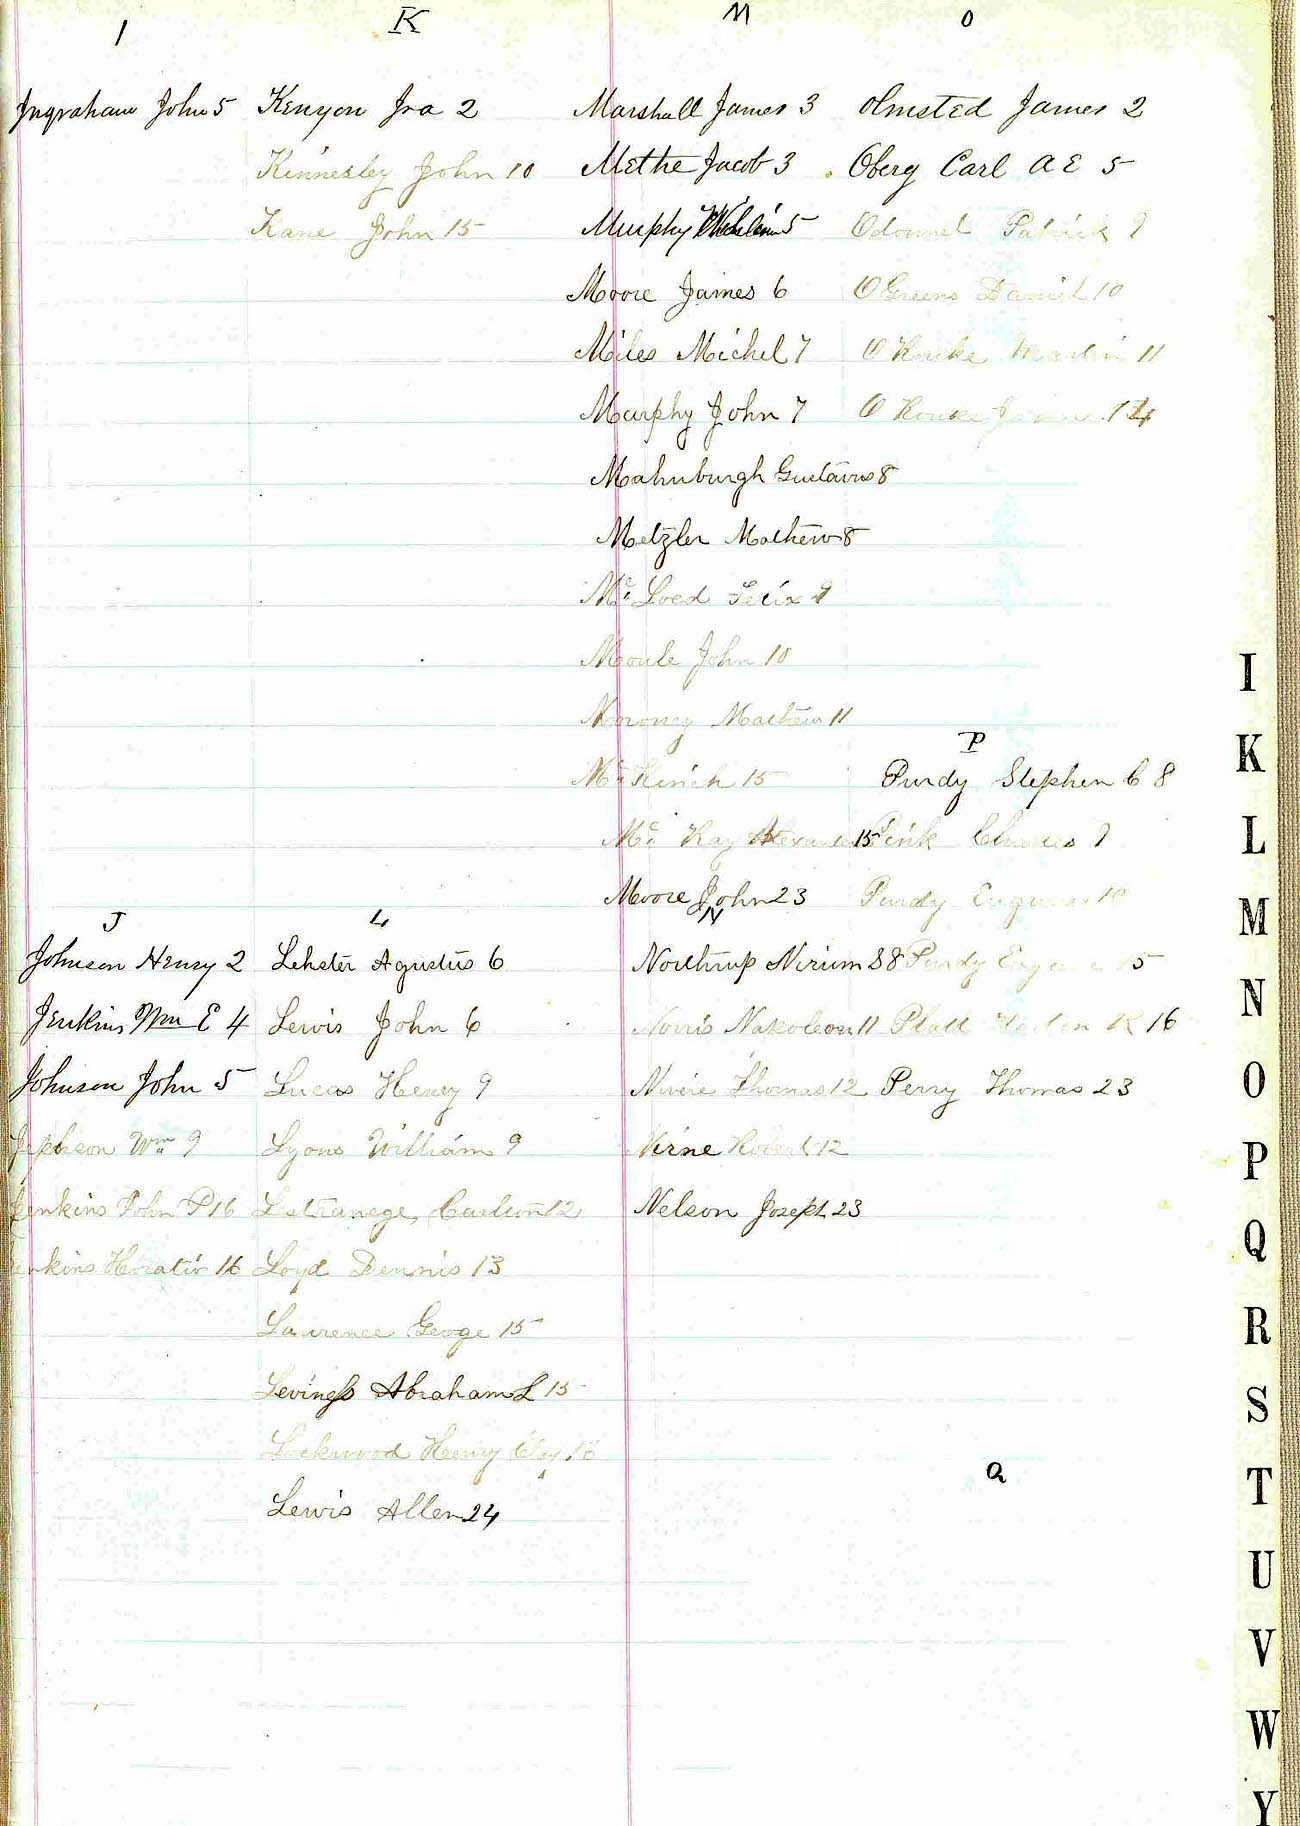 I
Ingraham John 5
K
Kenyon Ira 2
Kinnesley John 10
Kane John 15
M
Marshall James 3
Methe Jacob 3
Murphy 5
Moore James 6
Miles Michel 7
Murphy John 7
Mahnburgh Gustavus 8
Metzler Mathew 8
Mc Loed Felix 9
Moule John 10
Morony Mathew 11
Mc Hinch 15
Mc Kay Alexander 15
Moore John 23
O
Olmsted James 2
Oberg Carl A E 5
Odonnel Patrick 9
O Greens Daniel 10
O Rouke Martin 11
O Rouke James 14
P
Purdy Stephen C 8
Pink Charles 9
Purdy Eugene 10
Purdy Eugene 15
Platt R 16
Perry Thomas 23
J
Johnson Henry 2
Jenkins Wm E 4
Johnson John 5
Jephson Wm 9
Jenkins John P 16
Jenkins Horatio 16
L
Lehster Agustus 6
Lewis John 6
Lucas Henry 9
Lyons William 9
Lestranege, Carlton 12
Loyd Dennis 13
Laurence George 15
Leviness Abraham L 15
Lockwood Henry Clay
Lewis Allen 24
N
Northrup Nirum 8
Norris Napoleon 11
Nivire Thomas 12
Nirne Robert 12
Nelson Joseph 23
Q
I
K
L
M
N
O
P
Q
R
S
T
U
V
W
Y